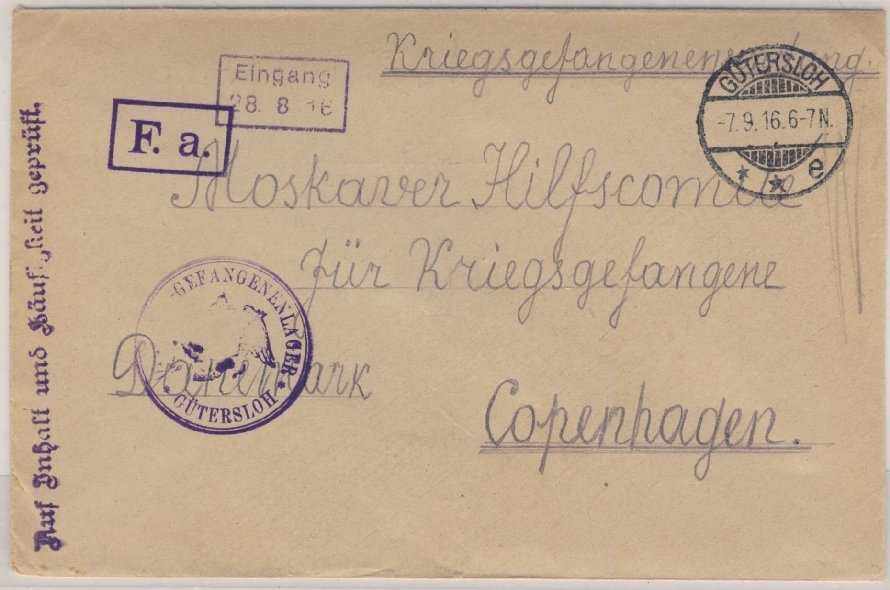 Kriegsgefangenensendung.
Eingang
28. 8 16
F. a.
GÜTERSLOH
-7.9.16.6-7N.
* * e
Moskauer Hilfscomite
für Kriegsgefangene
GEFANGENENLAGER
* GÜTERSLOH *
Dänemark
Copenhagen.
Auf Inhalt und Häufigkeit geprüft.